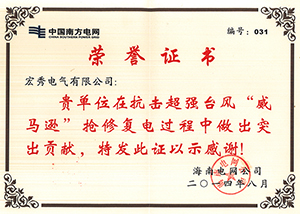 中国南方电网
CHINA SOUTHERN POWER GRID
编号：031
荣誉证书
宏秀电气有限公司：
贵单位在抗击超强台风“威
马逊”抢修复电过程中做出突
出贡献，特发此证以示感谢！
海南电网公司
二〇一四年八月